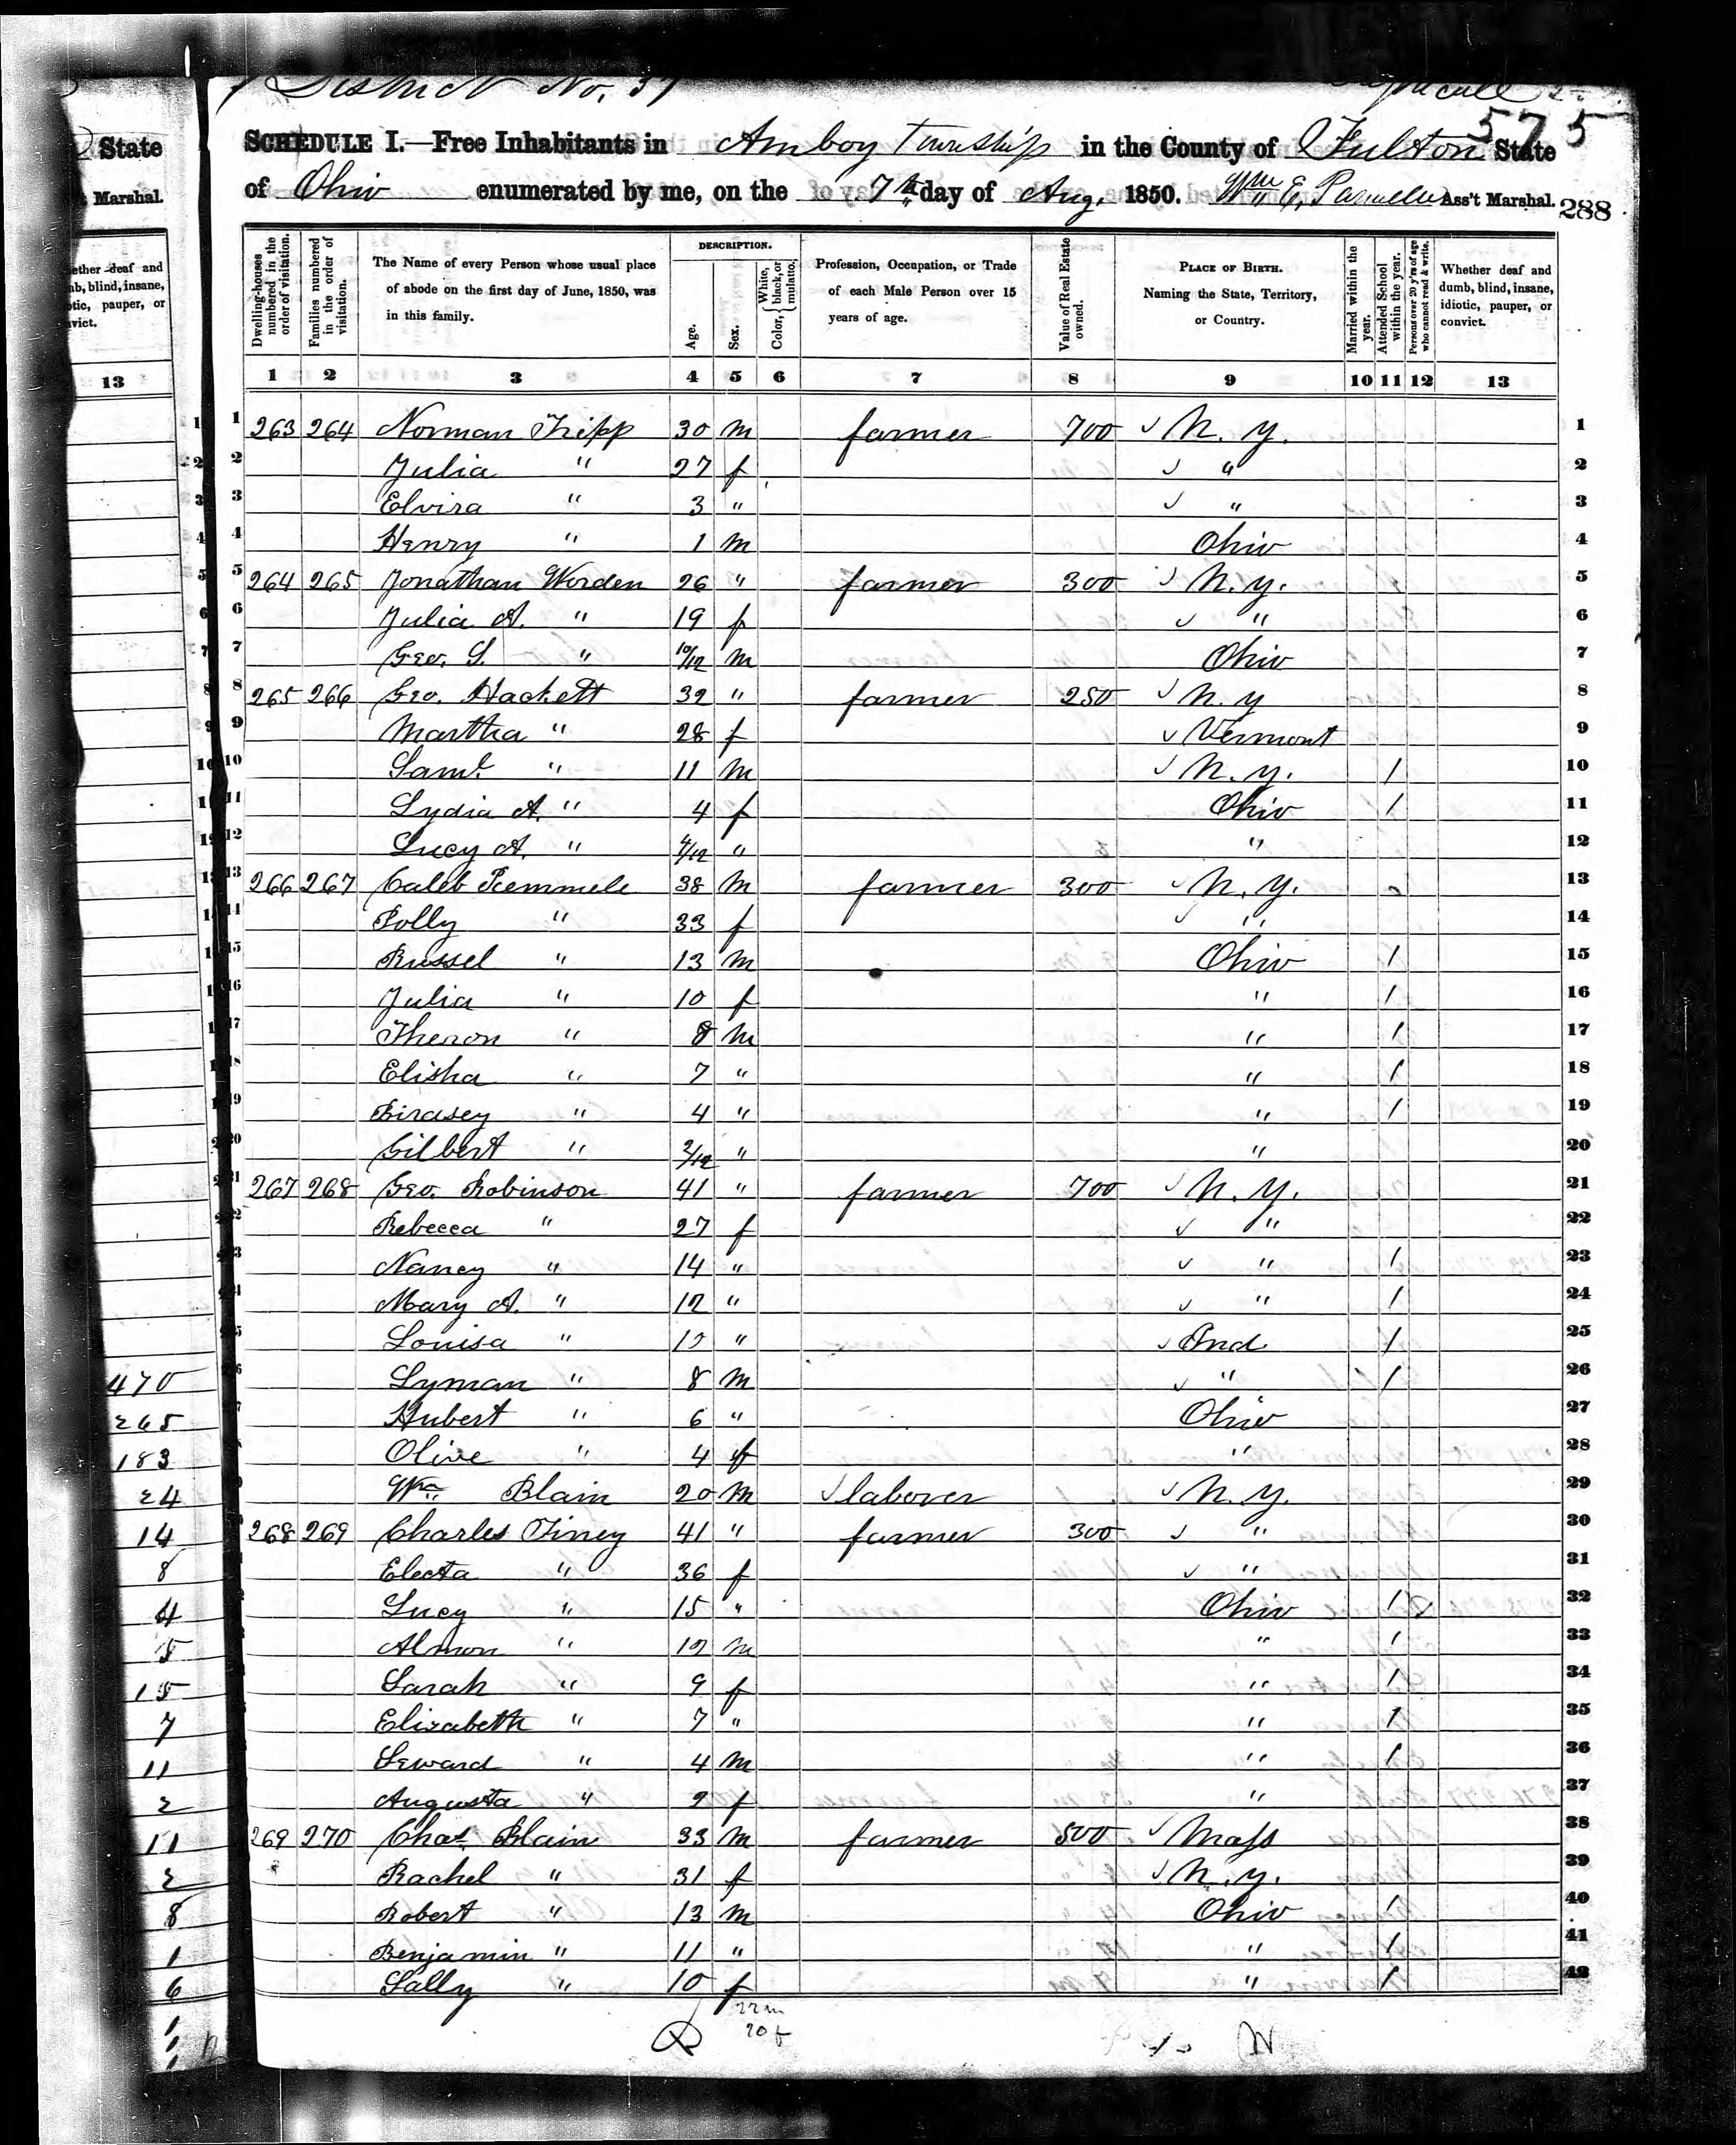 District No. 37
575
SCHEDULE I.—Free Inhabitants in Amboy Township in the County of Fulton State
of Ohio enumerated by me, on the 7th day of Aug. 1850. Wm E. Parmelee Ass't Marshal. 288
State
t Marshal.
ether deaf and
mb, blind, insane,
otic, pauper, or
nvict.
13
Dwelling-houses numbered in the order of visitation.
Families numbered in the order of visitation.
The Name of every Person whose usual place of abode on the first day of June, 1850, was in this family.
DESCRIPTION.
Age.
Sex.
Color, { White, black, or mulatto.
Profession, Occupation, or Trade of each Male Person over 15 years of age.
Value of Real Estate owned.
PLACE OF BIRTH. Naming the State, Territory, or Country.
Married within the year.
Attended School within the year.
Persons over 20 y'rs of age who cannot read & write.
Whether deaf and dumb, blind, insane, idiotic, pauper, or convict.
1 2 3 4 5 6 7 8 9 10 11 12 13
1 263 264 Norman Tripp 30 m farmer 700 N. Y. 1
2 Julia " 27 f " 2
3 Elvira " 3 " " 3
4 Henry " 1 m Ohio 4
5 264 265 Jonathan Worden 26 " farmer 300 N. Y. 5
6 Julia A. " 19 f " 6
7 Geo. S. " 10/12 m Ohio 7
8 265 266 Geo. Hackett 32 " farmer 250 N. Y 8
9 Martha " 28 f Vermont 9
10 Saml. " 11 m N. Y. 1 10
11 Lydia A. " 4 f Ohio 1 11
12 Lucy A. " 4/12 " " 12
13 266 267 Caleb Remmele 38 m farmer 300 N. Y. 13
14 Polly " 33 f " 14
15 Russel " 13 m Ohio 1 15
16 Julia " 10 f " 1 16
17 Theron " 8 m " 1 17
18 Elisha " 7 " " 1 18
19 Birdsey " 4 " " 1 19
20 Gilbert " 2/12 " " 20
21 267 268 Geo. Robinson 41 " farmer 700 N. Y. 21
22 Rebecca " 27 f " 22
23 Nancy " 14 " " 1 23
24 Mary A. " 12 " " 1 24
25 Louisa " 10 " Ind. 1 25
26 Lyman " 8 m " 1 26
27 Hubert " 6 " Ohio 27
28 Olive " 4 f " 28
29 Wm. Blain 20 m laborer N. Y. 29
30 268 269 Charles Finey 41 " farmer 300 " 30
31 Electa " 36 f " 31
32 Lucy " 15 " Ohio 1 32
33 Almon " 12 m " 1 33
34 Sarah " 9 f " 1 34
35 Elizabeth " 7 " " 1 35
36 Seward " 4 m " 1 36
37 Augusta " 2 f " 37
38 269 270 Chas. Blain 33 m farmer 500 Mass 38
39 Rachel " 31 f N. Y. 39
40 Robert " 13 m Ohio 1 40
41 Benjamin " 11 " " 1 41
42 Sally " 10 f " 1 42
22 m
20 f
470
265
183
24
14
8
4
5
15
7
11
2
11
2
8
1
6
1